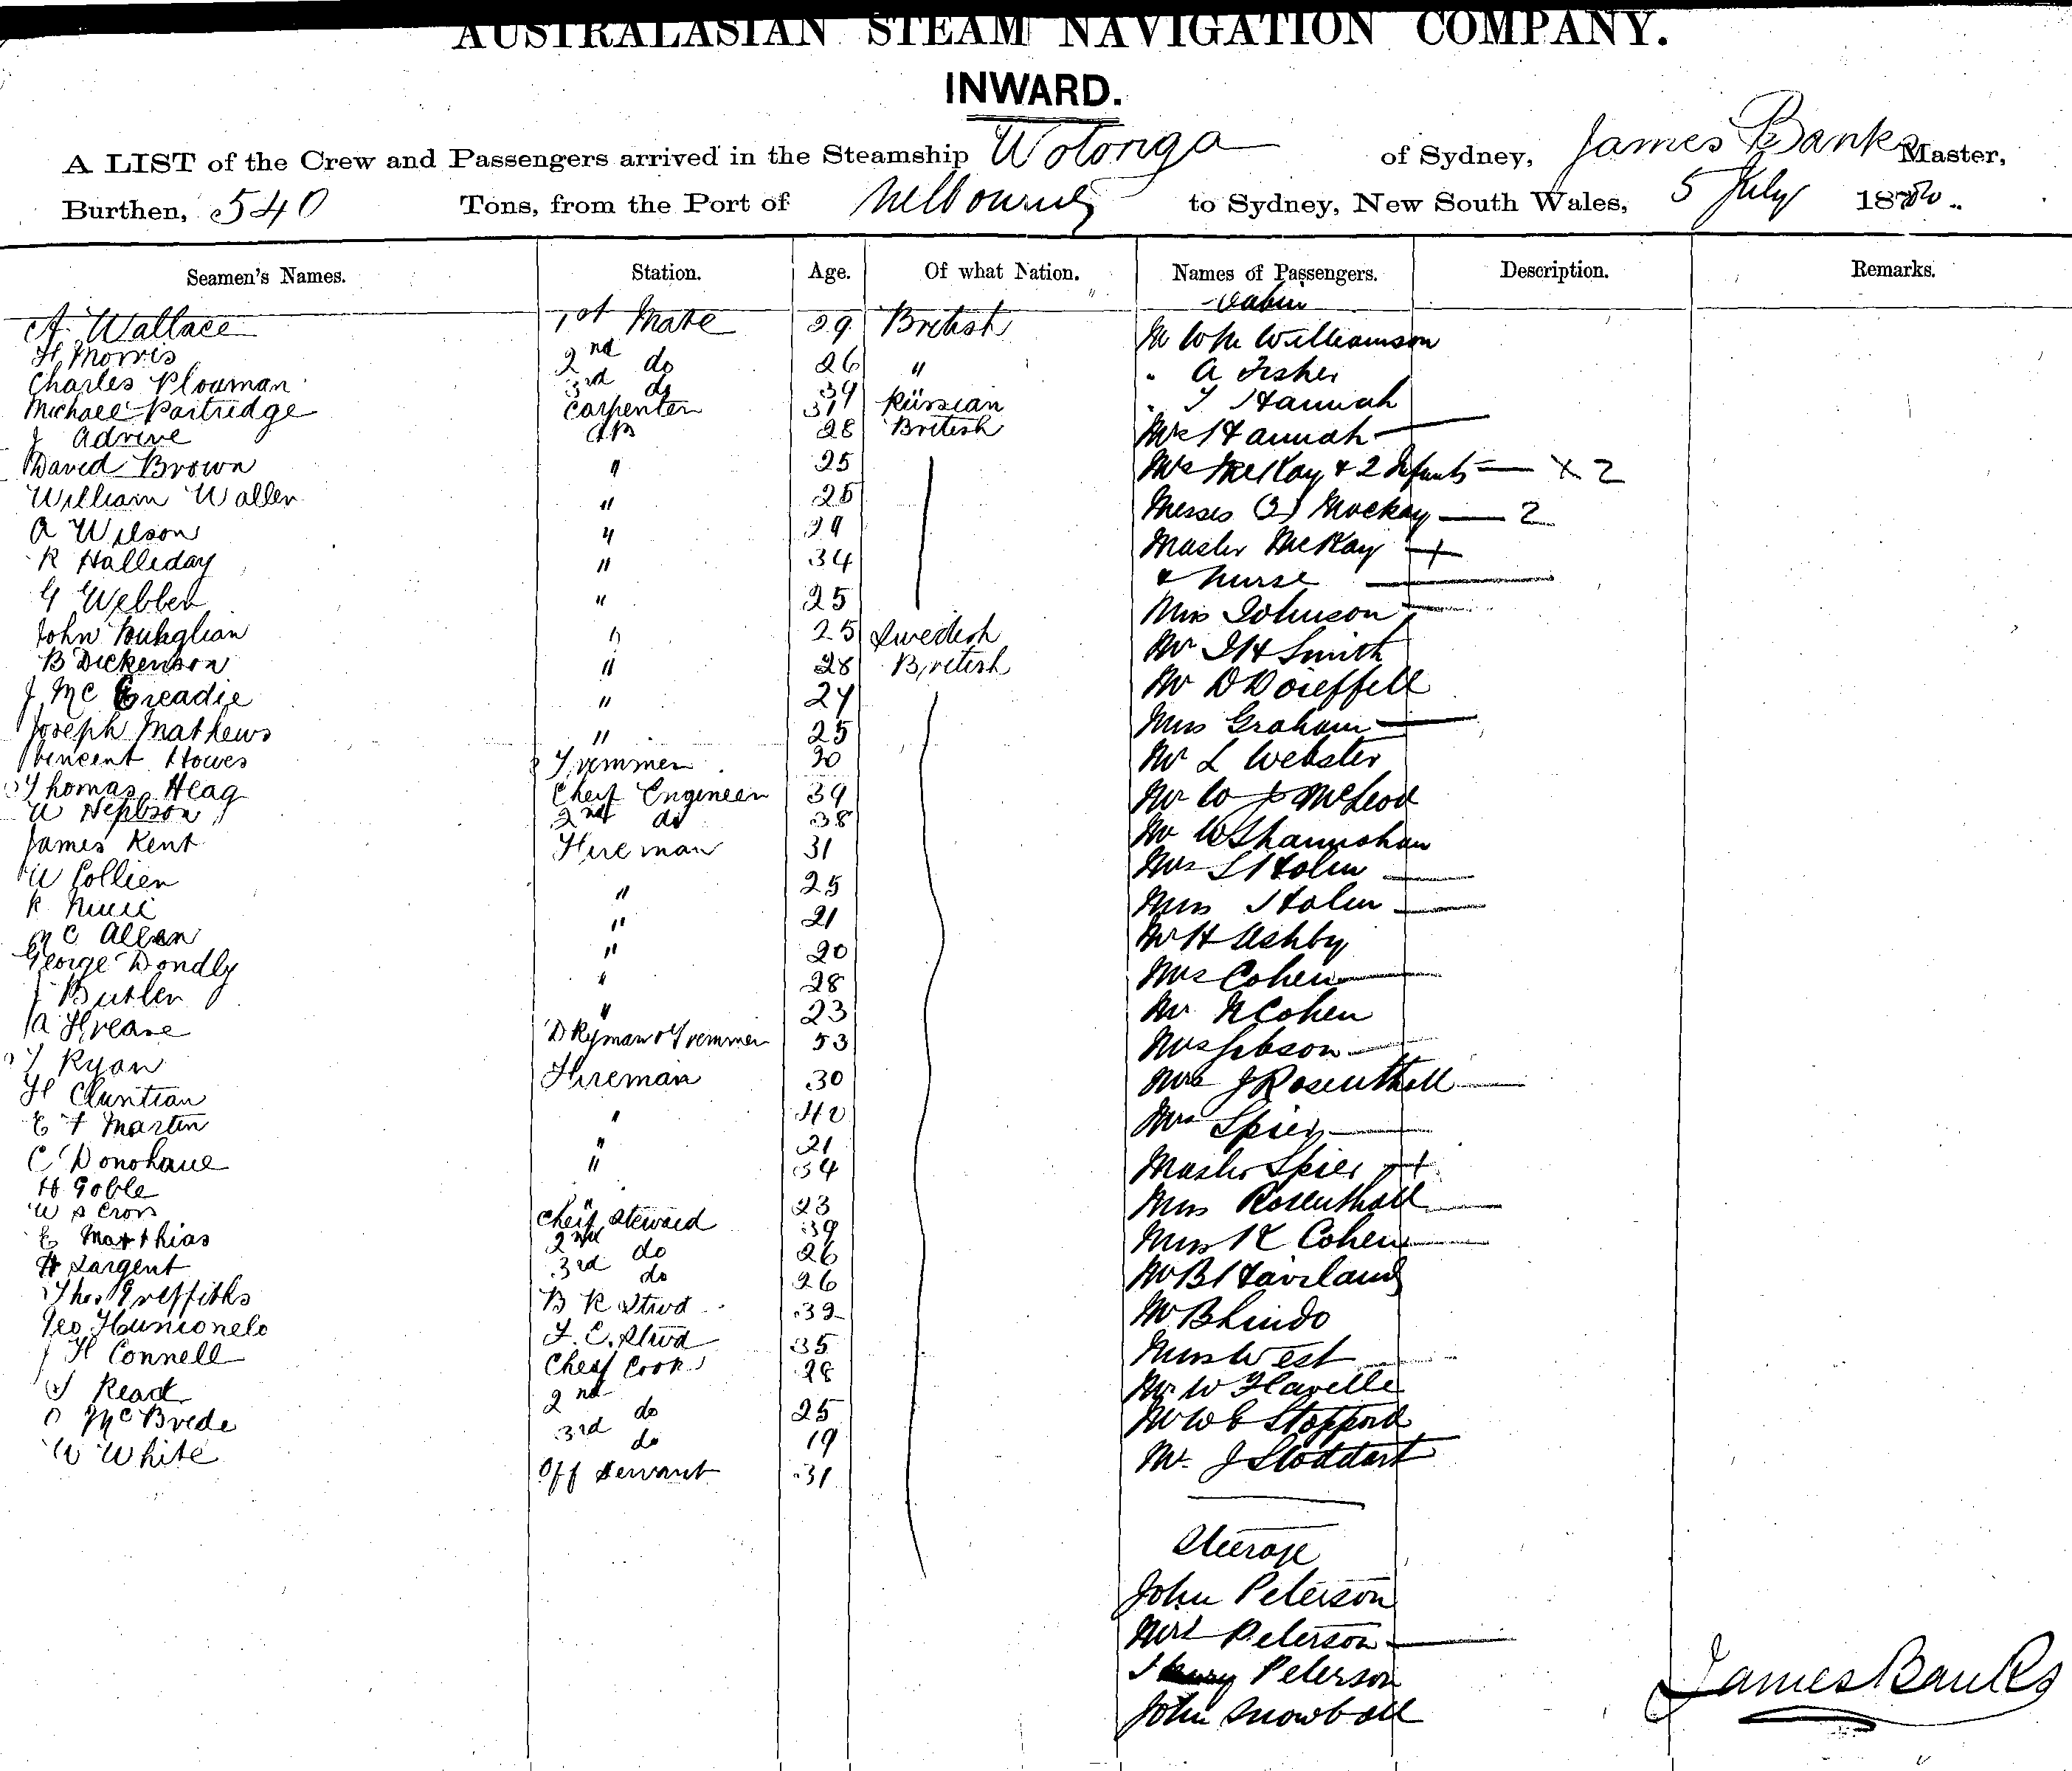 AUSTRALASIAN STEAM NAVIGATION COMPANY.
INWARD.
A LIST of the Crew and Passengers arrived in the Steamship Wotonga of Sydney, James Banks Master,
Burthen, 540 Tons, from the Port of Melbourne to Sydney, New South Wales, 5 July 18
Seamen's Names. Station. Age. Of what Nation. Names of Passengers. Description. Remarks.
Cabin
A. Wallace 1st Mate 29 British Mr Wm Williamson
H Morris 2nd do 26 " " A Fisher
Charles Plowman 3rd do 39
Michael Partridge Carpenter 31 Russian " T Hannah
J Adrive AB 28 British Mrs Hannah
David Brown " 25 Mrs McKay & 2 Infants × 2
William Waller " 25 Messes (2) Mackay 2
A Wilson " 29 Master McKay +
R Halliday " 34 & Nurse
G Webber " 25 Miss Johnson
John " 25 Swedish Mr J H Smith
B Dickenson " 28 British Mr D
J McCreadie " 24 Miss Graham
Joseph Mathews " 25
Vincent Howes Trimmer 30 Mr L Webster
Thomas Heag Cheif Engineer 39 Mr W J McLeod
W Hepbson 2nd do 38 Mr W Shannohan
James Kent Fireman 31 Mrs S Holm
W Collier " 25 Miss Holm
R " 21 Mr H Ashby
M C Allen " 20
George Dondly " 28 Mrs Cohen
J Butler " 23 Mr N Cohen
A Frease D Kyman & Tremmer 53 Mrs Jobson
T Ryan Fireman 30 Mrs J Rosenthall
H Cluntian " 40 Mrs Spier
E F Martin " 21
C Donohaue " 34 Master Spier +
H Goble " 23 Miss Rosenthall
W S Cross Cheif Steward 39 Miss K Cohen
E Matthias 2nd do 26
H Sargent 3rd do 26 Mr B Haviland
Thos Griffiths B R Stwd 32 Mr B Lindo
Geo F. C. Stwd 35 Miss West
J H Connell Cheif Cook 28 Mr W Flavelle
J Read 2nd do 25 Mr W E Stopford
O McBride 3rd do 19 Mr. J Stoddart
W White Off Servant 31
Steerage
John Peterson
Mrs Peterson
Peterson
John Snowball
James Banks